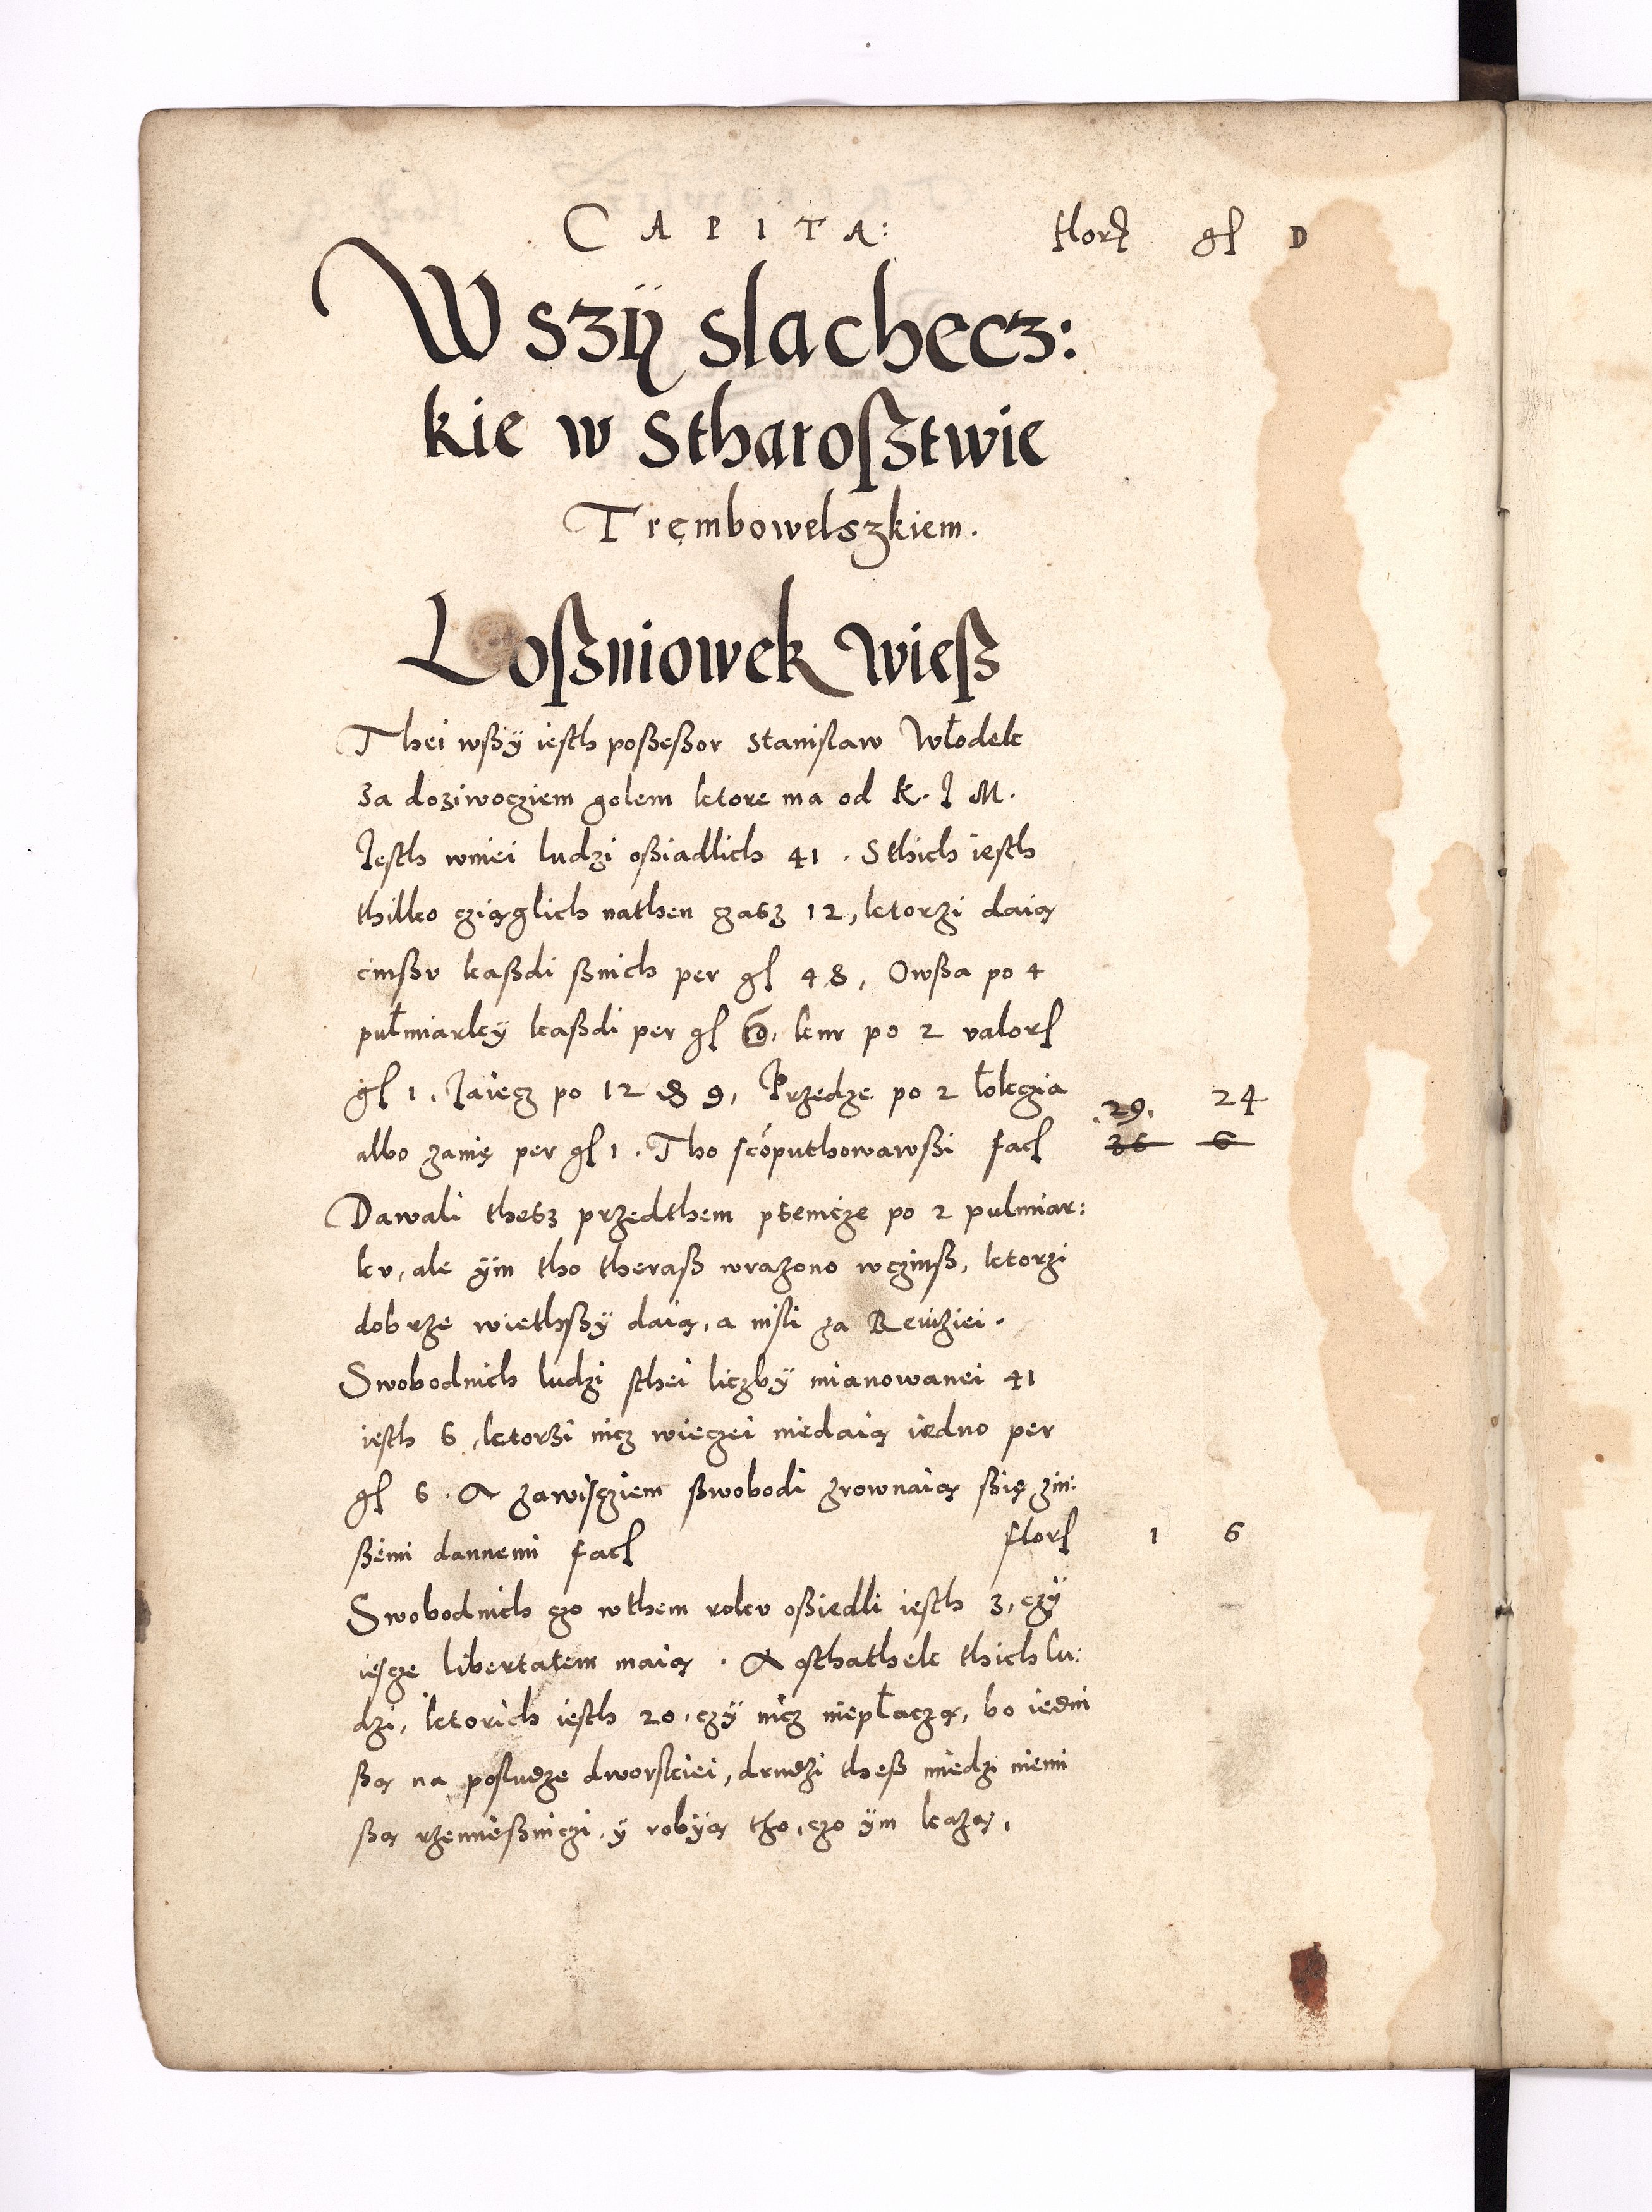 CAPITA: flor gl D
Wszÿ slachecz:
kie w Stharoßtwie
Trembowelszkiem.
Loßniowek wieß
Thei wßÿ iesth poßeßor Stanislaw Włodek
za doziwocziem golem ktore ma od K. J M.
Jesth wniei ludzi oßiadlich 41. Sthich iesth
thilko cziąglich nathen czasz 12, ktorzi daią
cinßu kaßdi ßnich per gl 48, Owßa po 4
pułmiarkÿ kaßdi per gl, kur po 2 valor
gl 1, Jaiecz po 12 9, Przedze po 2 łokczia
albo zanię per gl 1. Tho scoputhowawßi fac 29. 24
36 6
Dawali thesz przedthem psenicze po 2 pulmiar:
ku, ale ÿm tho theraß wrazono wczinß, ktorzi
dobrze wiethßÿ daią, a nisli za Reviziei.
Swobodnich ludzi sthei liczbÿ mianowanei 41
iesth 6, ktorzi nicz wieczei niedaią iedno per
gl 6. A zawiscziem ßwobodi zrownaią ßię zin:
ßemi dannemi fac flor 1 6
Swobodnich czo wthem roku oßiedli iesth 3, czÿ
iescze libertatem maią. A osthathek thich lu:
dzi, ktorich iesth 20, czÿ nicz niepłaczą, bo iedni
ßą na posludze dworskiei, drudzi theß miedzi niemi
ßą rzemießniczi, ÿ robÿą tho, czo ÿm każą,